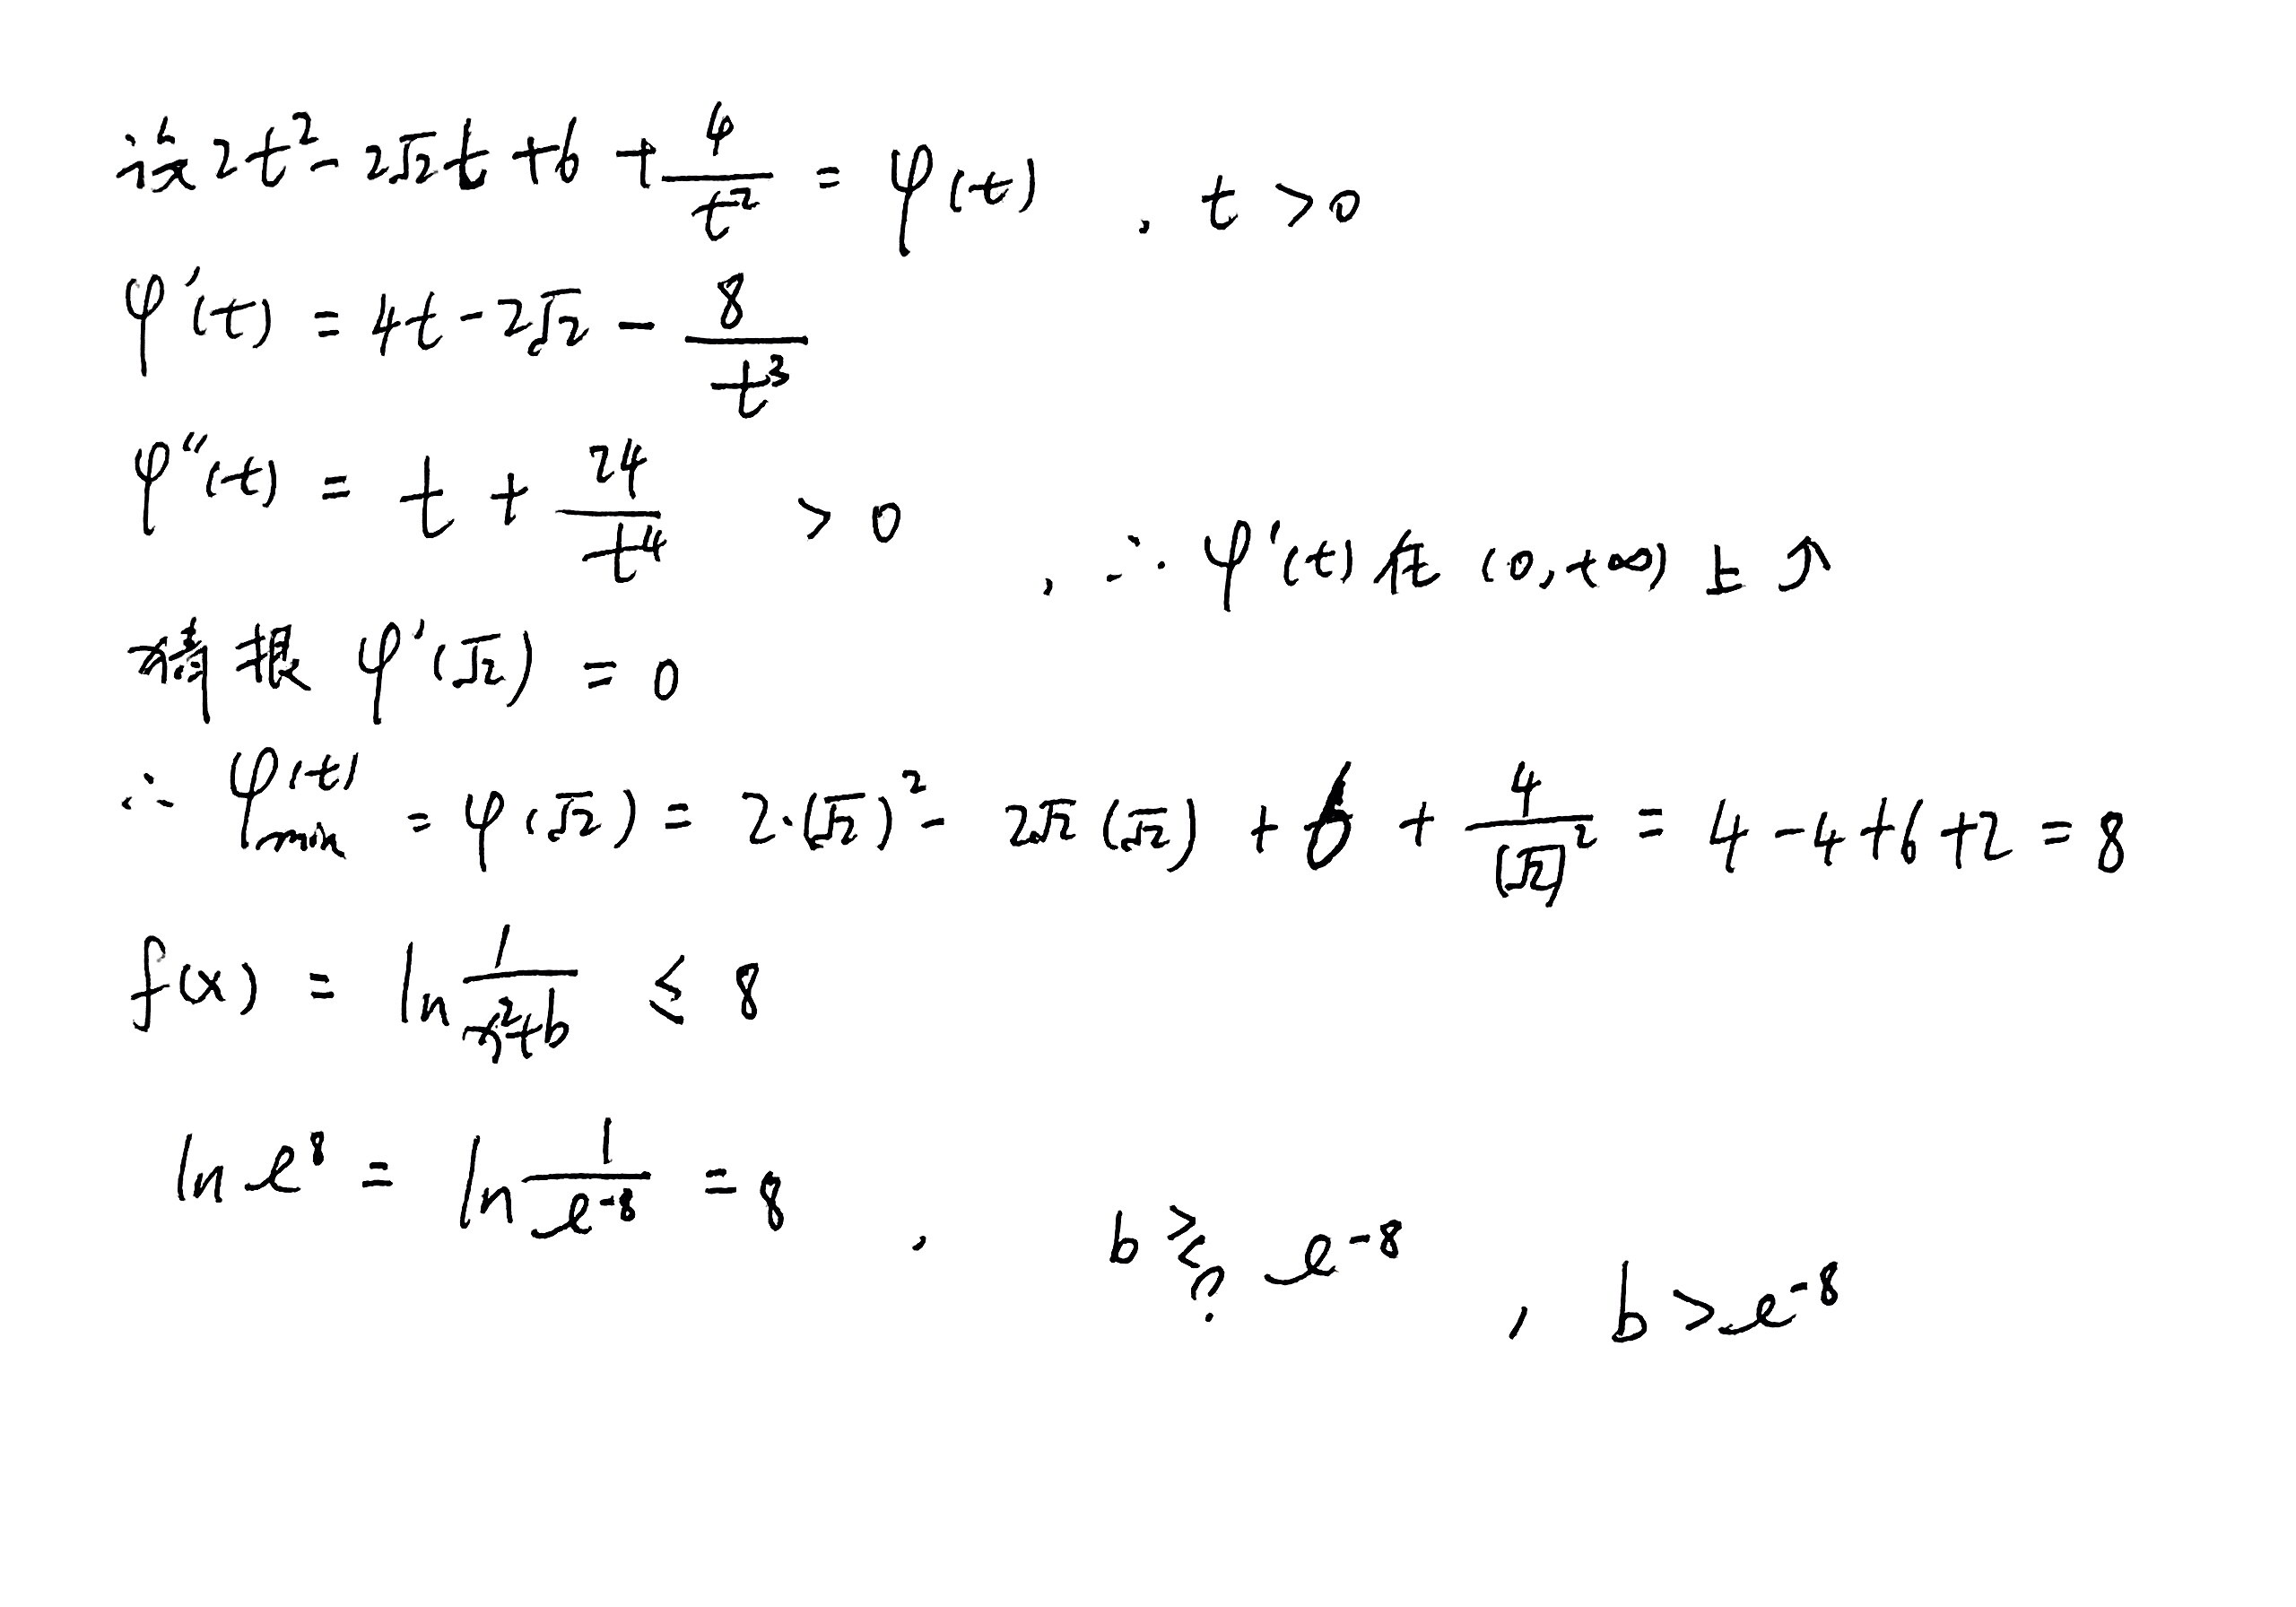 设 2t² - 2√2t + 6 + 4/t² = φ(t) , t > 0
φ'(t) = 4t - 2√2 - 8/t³
φ''(t) = t + 24/t⁴ > 0 , ∴ φ'(t) 在 (0, +∞) 上 ↑
猜根 φ'(√2) = 0
∴ φ(t)min = φ(√2) = 2·(√2)² - 2√2(√2) + 6 + 4/(√2)² = 4 - 4 + 6 + 2 = 8
f(x) = ln 1/(x²+b) ≤ 8
ln e⁸ = ln 1/e⁻⁸ = 8 , b ≷? e⁻⁸ , b > e⁻⁸